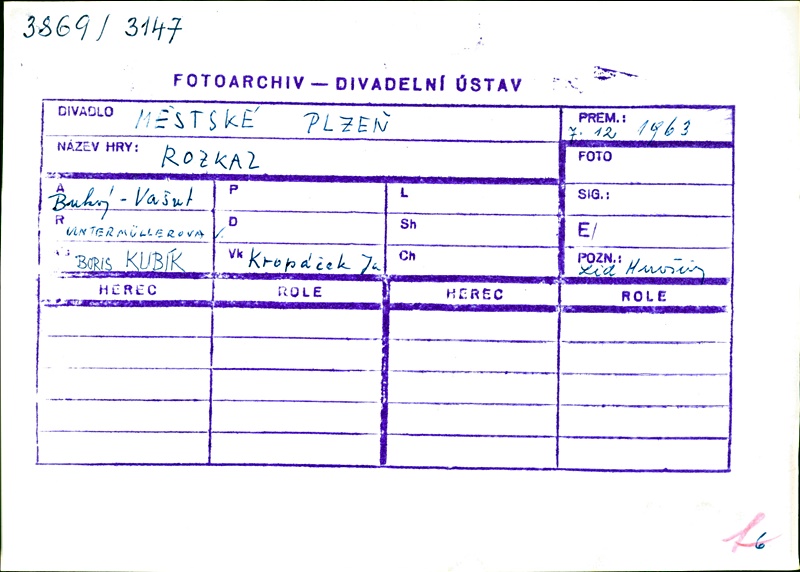 3869 / 3147
FOTOARCHIV — DIVADELNÍ ÚSTAV
DIVADLO MĚSTSKÉ PLZEŇ
PREM.: 7. 12 1963
NÁZEV HRY: ROZKAZ
FOTO
A - Vašut P L SIG.:
R UNTERMÜLLEROVA D Sh E/
BORIS KUBÍK Vk Kropáček Ja Ch POZN.:
HEREC ROLE HEREC ROLE
6